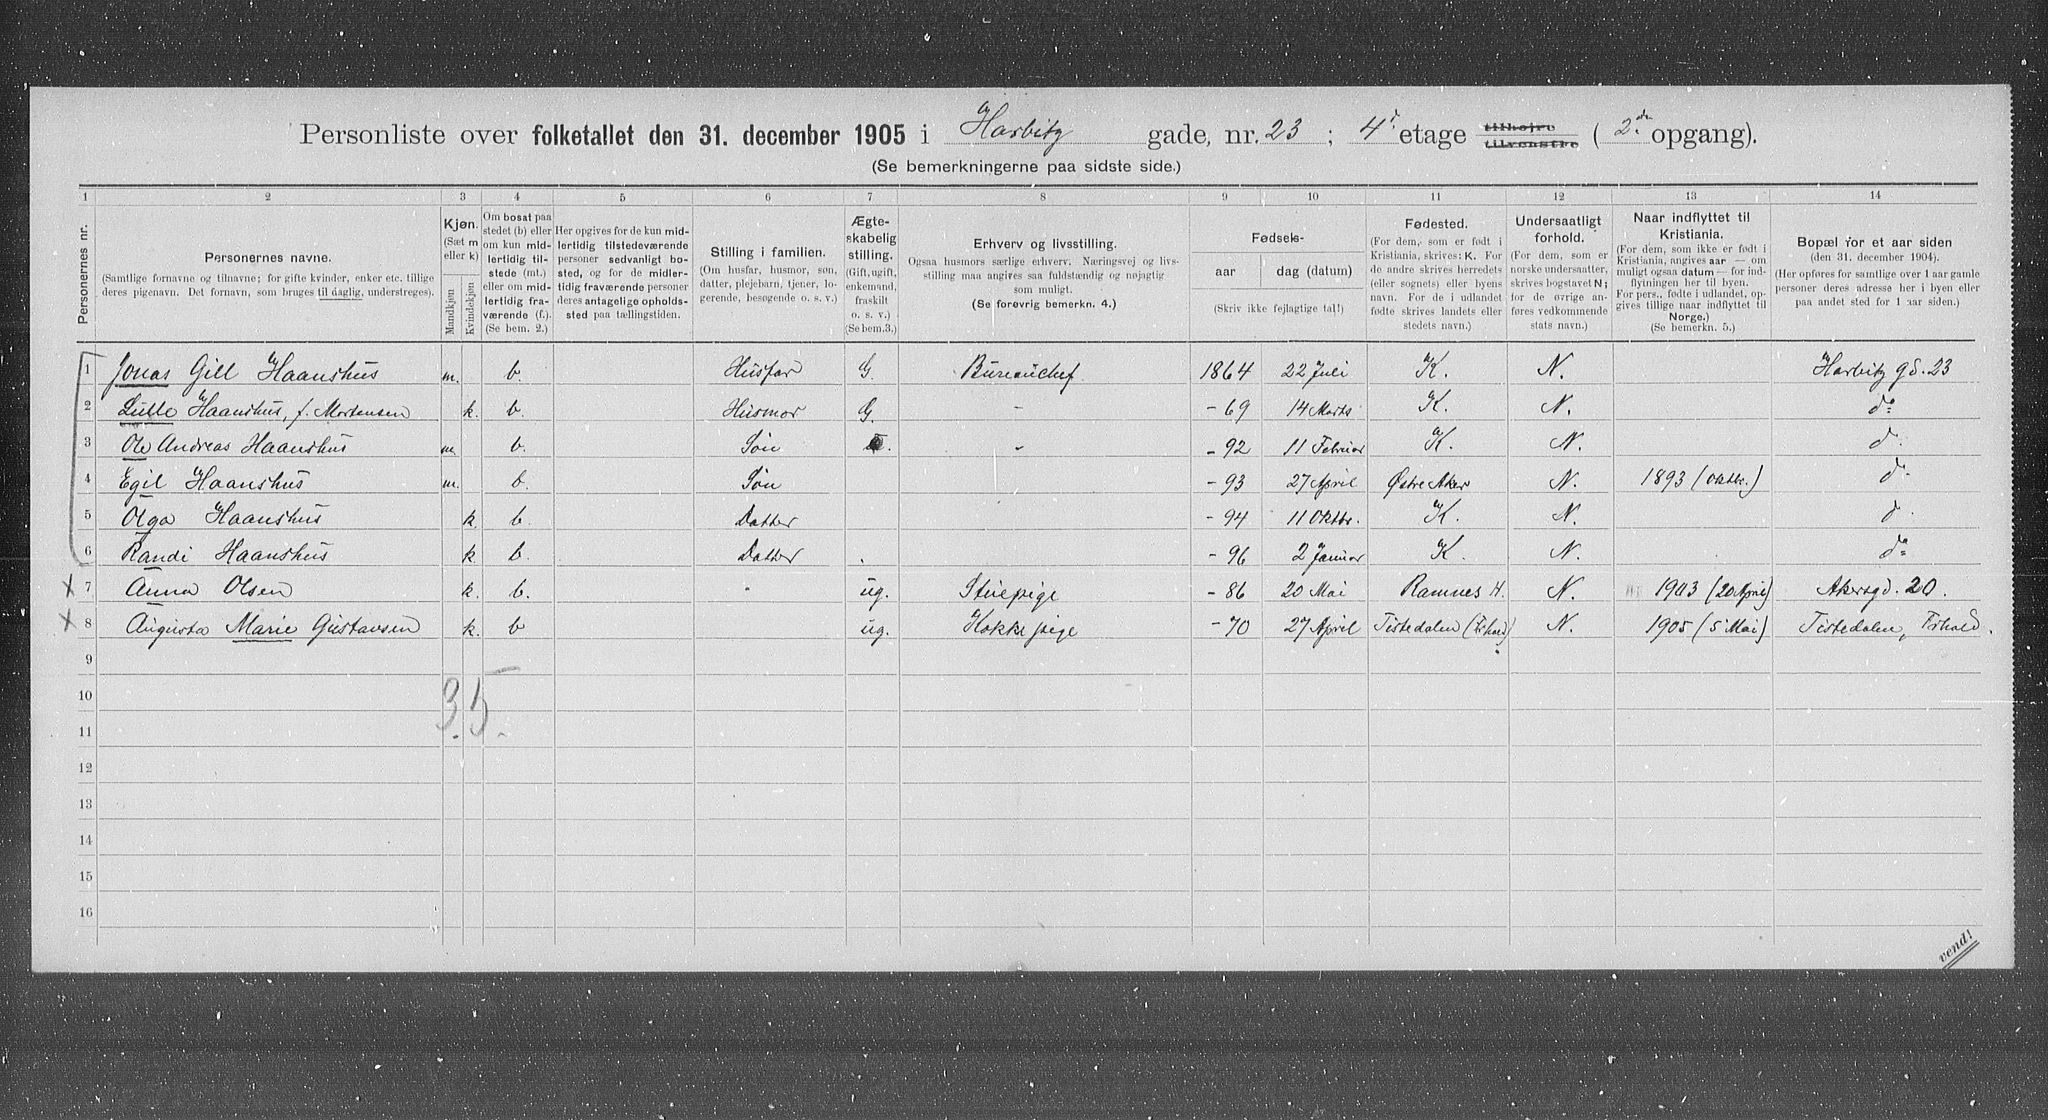 Personliste over folketallet den 31. december 1905 i Harbitz gade, nr. 23 ; 4d etage tilhøjre tilvenstre ( 2.den opgang).
(Se bemerkningerne paa sidste side.)
1 2 3 4 5 6 7 8 9 10 11 12 13 14
Personernes nr.
Personernes navne.
(Samtlige fornavne og tilnavne; for gifte kvinder, enker etc. tillige
deres pigenavn. Det fornavn, som bruges til daglig, understreges).
Kjøn.
(Sæt m
eller k)
Mandkjøn
Kvindekjøn
Om bosat paa
stedet (b) eller
om kun mid-
lertidig til-
stede (mt.)
eller om mid-
lertidig fra-
værende (f.).
(Se bem. 2.)
Her opgives for de kun mid-
lertidig tilstedeværende
personer sedvanlig bo-
sted, og for de midler-
tidig fraværende personer
deres antagelige opholds-
sted paa tællingstiden.
Stilling i familien.
(Om husfar, husmor, søn,
datter, plejebarn, tjener, lo-
gerende, besøgende o. s. v.)
Ægte-
skabelig
stilling.
(Gift, ugift,
enkemand,
fraskilt
o. s. v.)
(Se bem.3.)
Erhverv og livsstilling.
Ogsaa husmors særlige erhverv. Næringsvej og livs-
stilling maa angives saa fuldstændig og nøjagtig
som muligt.
(Se forøvrig bemerkn. 4.)
Fødsels-
aar dag (datum)
(Skriv ikke fejlagtige tal!)
Fødested.
(For dem, som er født i
Kristiania, skrives: K. For
de andre skrives herredets
(eller sognets) eller byens
navn. For de i udlandet
fødte skrives landets eller
stedets navn.)
Undersaatligt
forhold.
(For dem, som er
norske undersaatter,
skrives bogstavet N;
for de øvrige an-
føres vedkommende
stats navn.)
Naar indflyttet til
Kristiania.
(For dem, som ikke er født i
Kristiania, angives aar — om
muligt ogsaa datum — for ind-
flytningen her til byen.
For pers., fødte i udlandet, op-
gives tillige naar indflyttet til
Norge.)
(Se bemerkn. 5.)
Bopæl for et aar siden
(den 31. december 1904).
(Her opføres for samtlige over 1 aar gamle
personer deres adresse her i byen eller
paa andet sted for 1 aar siden.)
1 Jonas Gill Haanshus m. b. Husfar G. Bureauchef 1864 22 Juli K. N. Harbitz gd. 23
2 Lulle Haanshus, f. Mortensen k. b. Husmor G. - - 69 14 Marts K. N. do
3 Ole Andreas Haanshus m. b. Søn - - 92 11 Februar K. N. do
4 Egil Haanshus m. b. Søn - 93 27 April Østre Aker N. 1893 (Oktbr.) do
5 Olga Haanshus k. b. Datter - 94 11 Oktbr. K. N. do
6 Randi Haanshus k. b. Datter - 96 2 Januar K. N. do
x 7 Anna Olsen k. b. ug. Stuepige - 86 20 Mai Ramnes H. N. 1903 (20 April) Akersgd. 20.
x 8 Augusta Marie Gustavsen k. b ug. Kokkepige - 70 27 April Tistedalen (Frhald) N. 1905 (5 Mai) Tistedalen, Frhald.
9
10
3. 5.
11
12
13
14
15
16
vend!